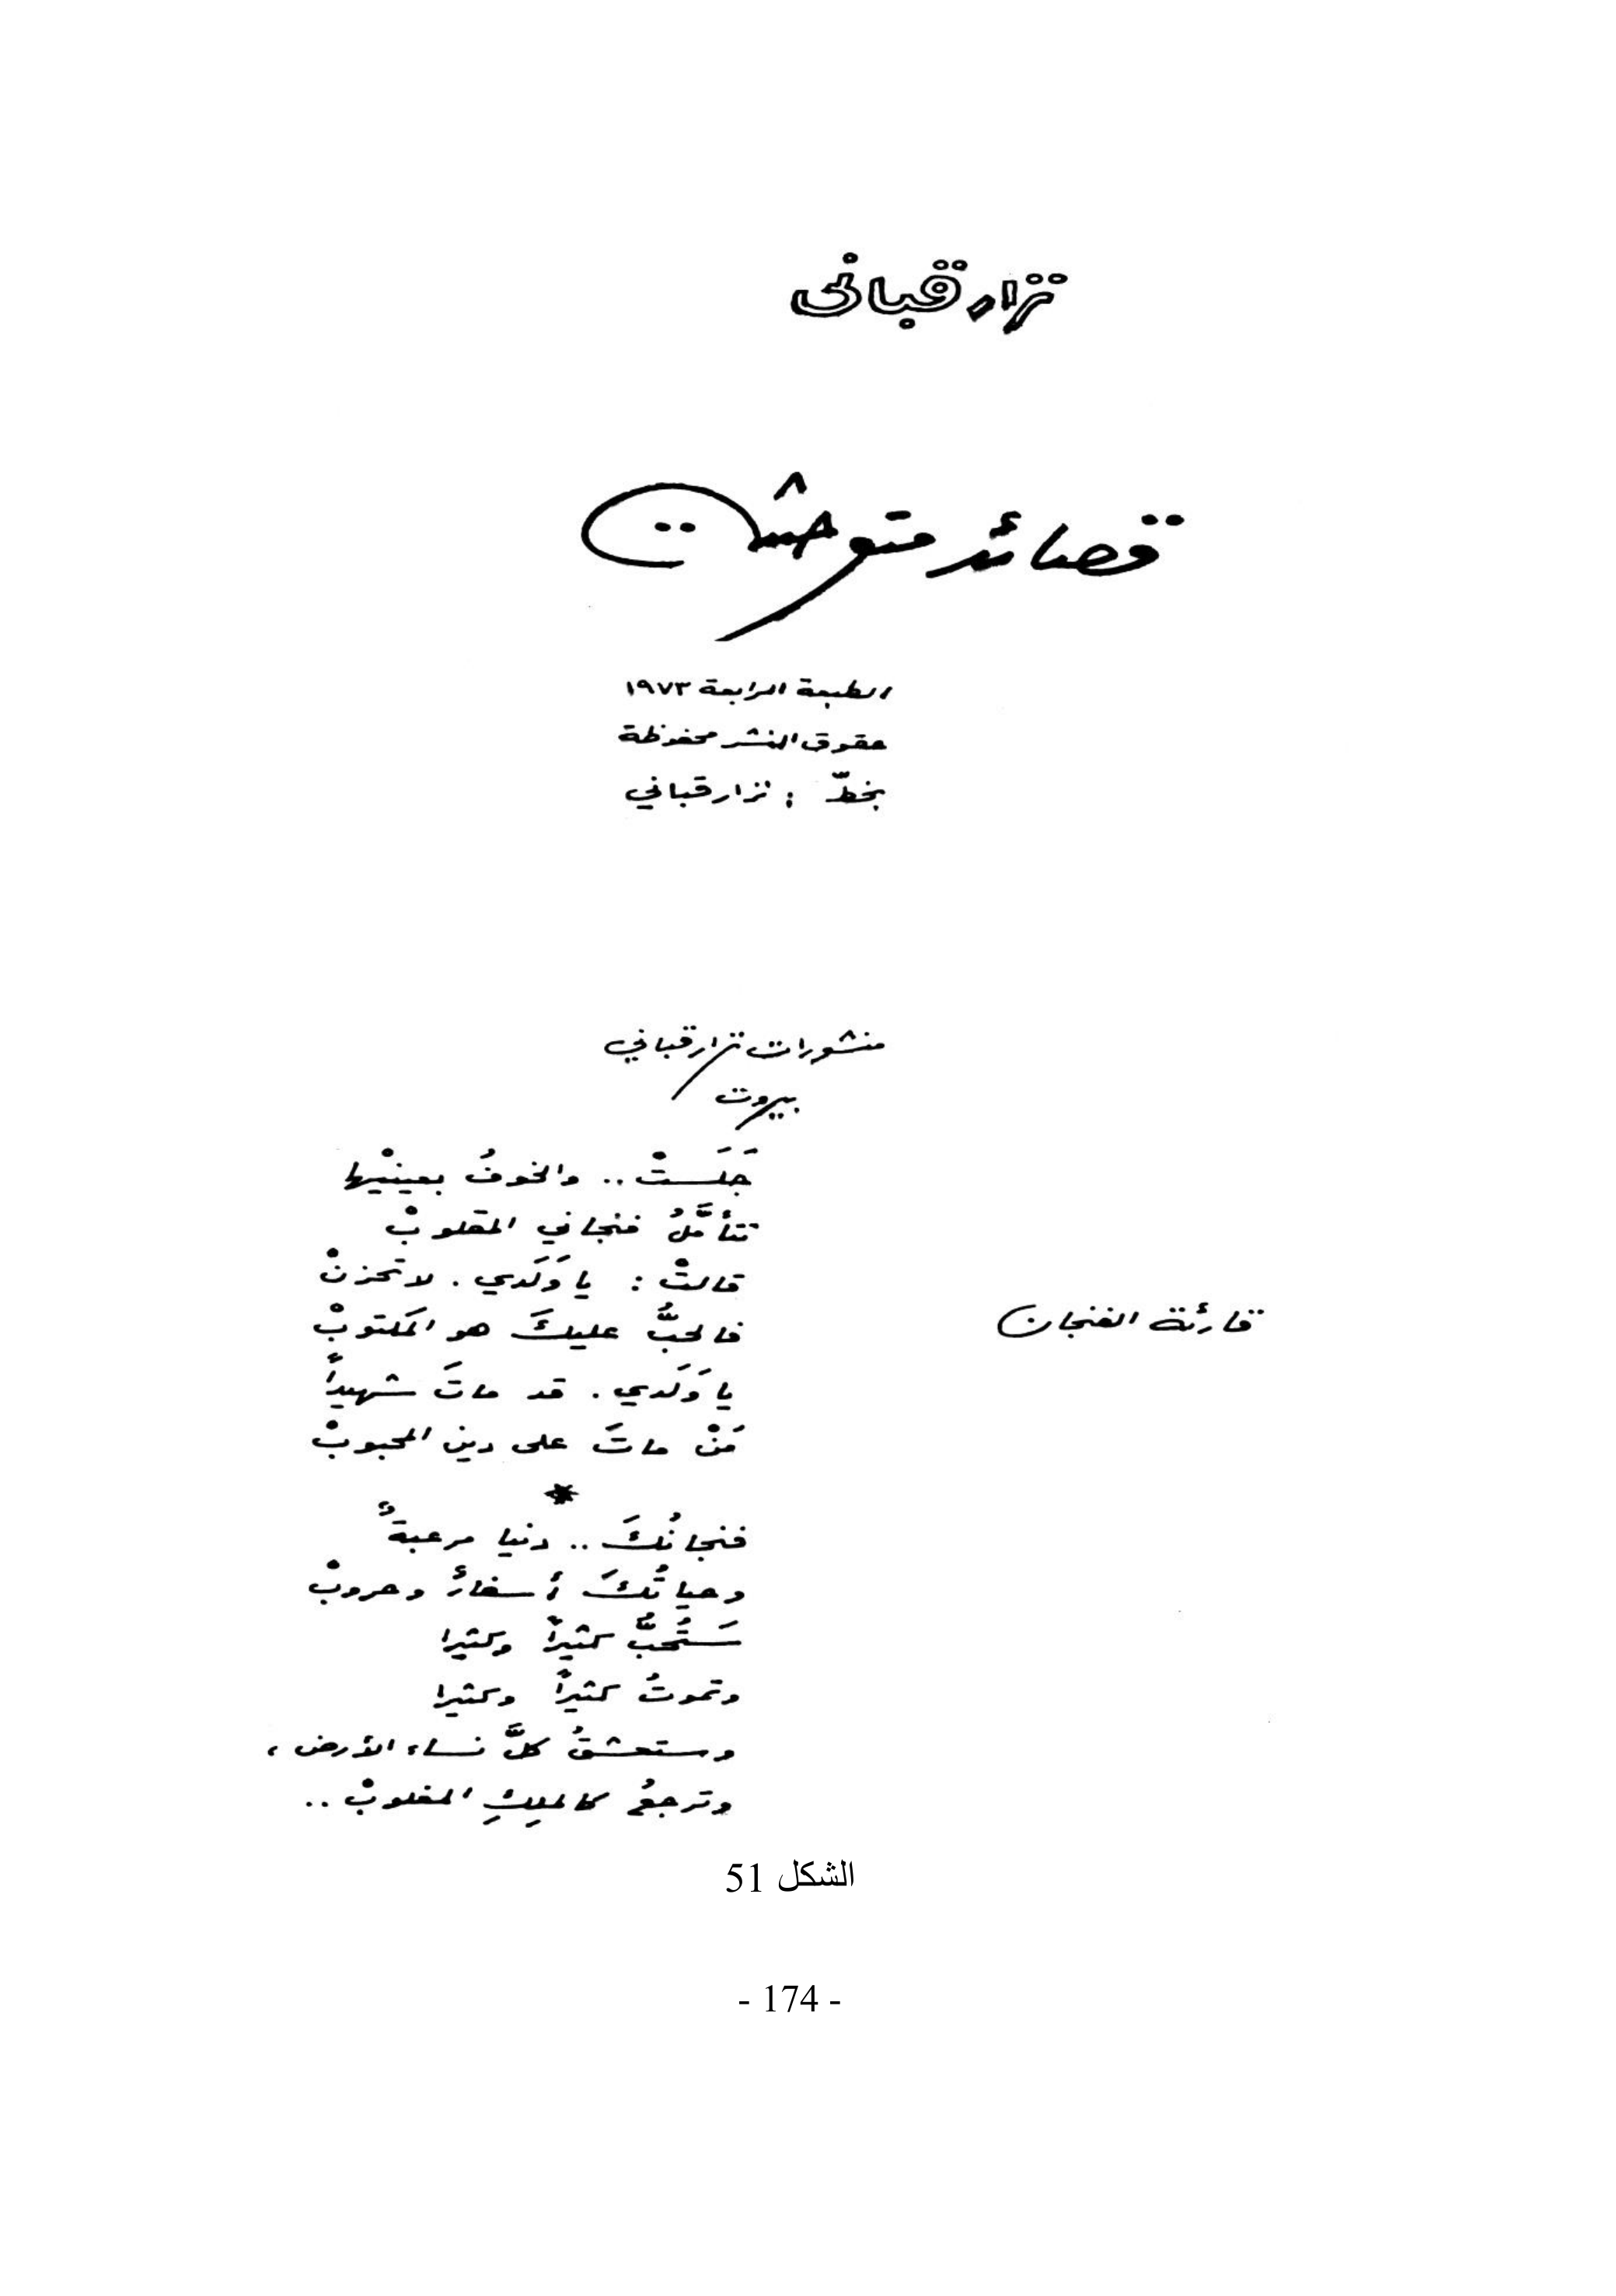 نزار قباني
قصائد متوحشة
الطبعة الرابعة ١٩٧٣
حقوق النشر محفوظة
بخطّ : نزار قباني
منشورات نزار قباني
بيروت
قارئة الفنجان
جَلَسَتْ .. والخوفُ بعينيْها
تتأمَّلُ فنجاني المقلوبْ
قالتْ : يا وَلَدي . لا تحزنْ
فالحبُّ عليكَ هو المَكتوبْ
يا وَلَدي . قد ماتَ شهيداً
مَنْ ماتَ على دين المحبوبْ
*
فنجانُكَ .. دنيا مرعبةٌ
وحياتُكَ أسفارٌ وحروبْ
سَتُحبُّ كثيراً وكثيرا
وتموتُ كثيراً وكثيرا
وستعشقُ كلَّ نساء الأرض ،
وترجعُ كالملِكِ المغلوبْ ..
الشكل 51
- 174 -